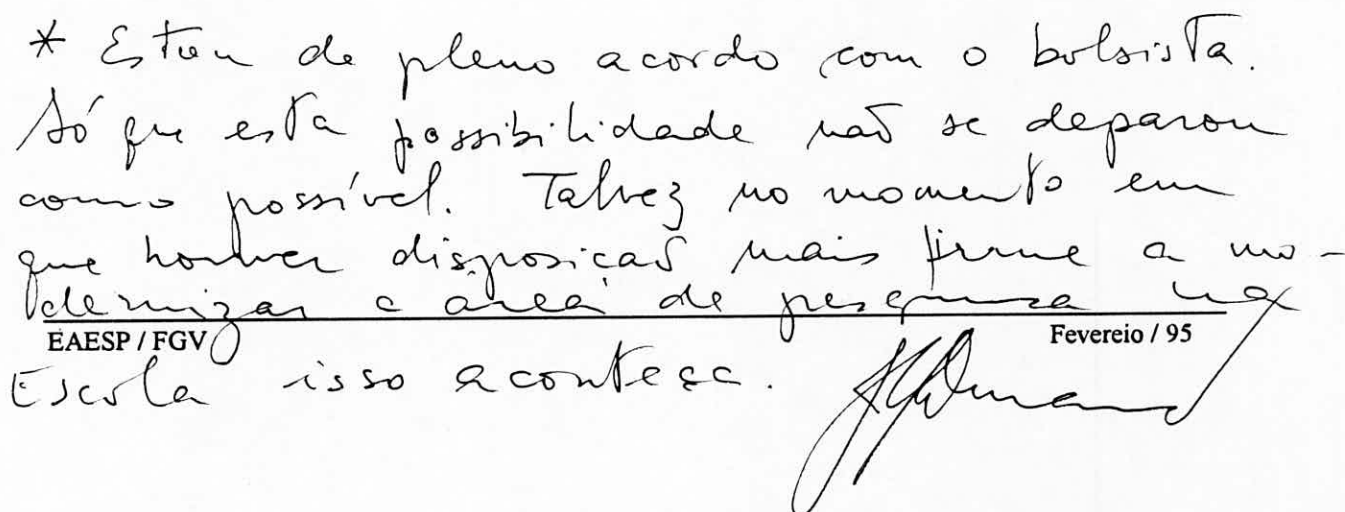 * Estou de pleno acordo com o bolsista.
Só que esta possibilidade não se deparou
como possível. Talvez no momento em
que houver disposição mais firme a mo-
dernizar a área de pesquisa na
EAESP / FGV Fevereio / 95
Escola isso aconteça.